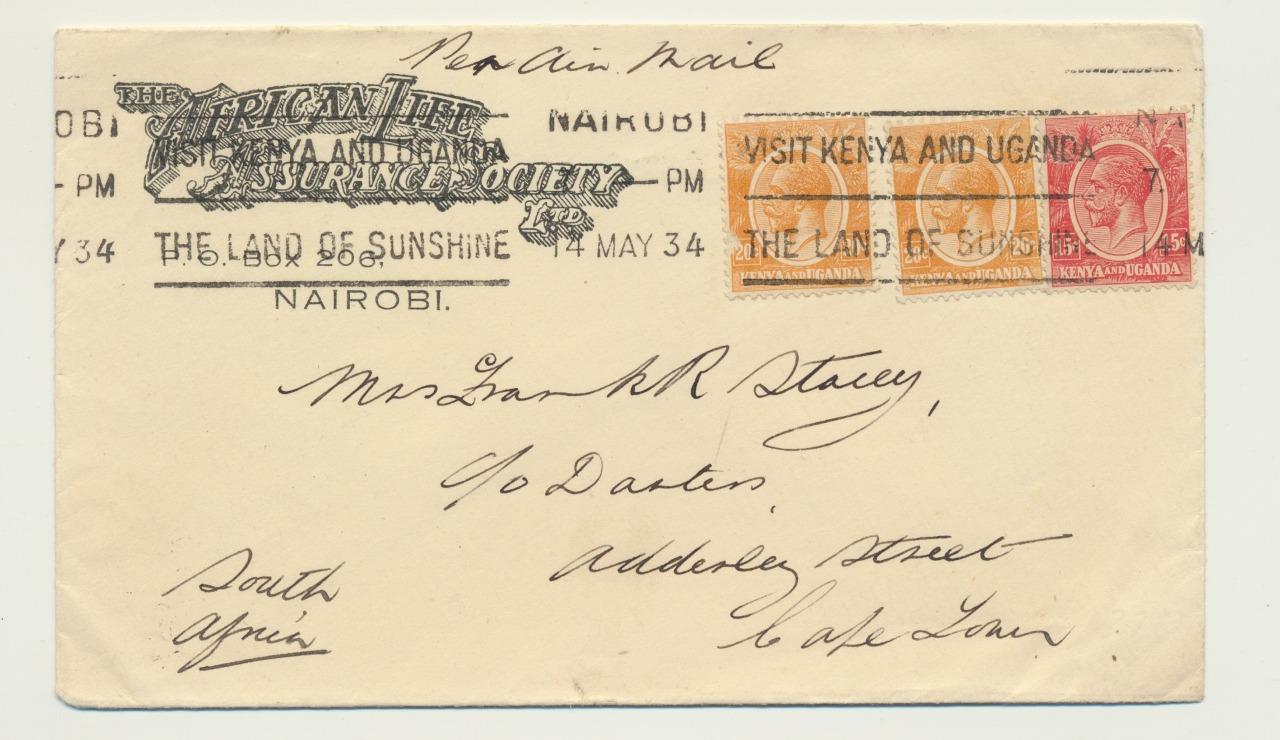 Per Air Mail
THE AFRICAN LIFE
ASSURANCE SOCIETY
LTD
P. O. Box 206,
NAIROBI.
OBI
- PM
Y 34
VISIT KENYA AND UGANDA
THE LAND OF SUNSHINE
NAIROBI
- PM
14 MAY 34
VISIT KENYA AND UGANDA
THE LAND OF SUNSHINE
7.
14 M
20c
KENYA AND UGANDA
20c 20c
KENYA AND UGANDA
15c 15c
KENYA AND UGANDA
Mrs Frank R Stacey,
c/o Darters,
Adderley Street
Cape Town
South
Africa